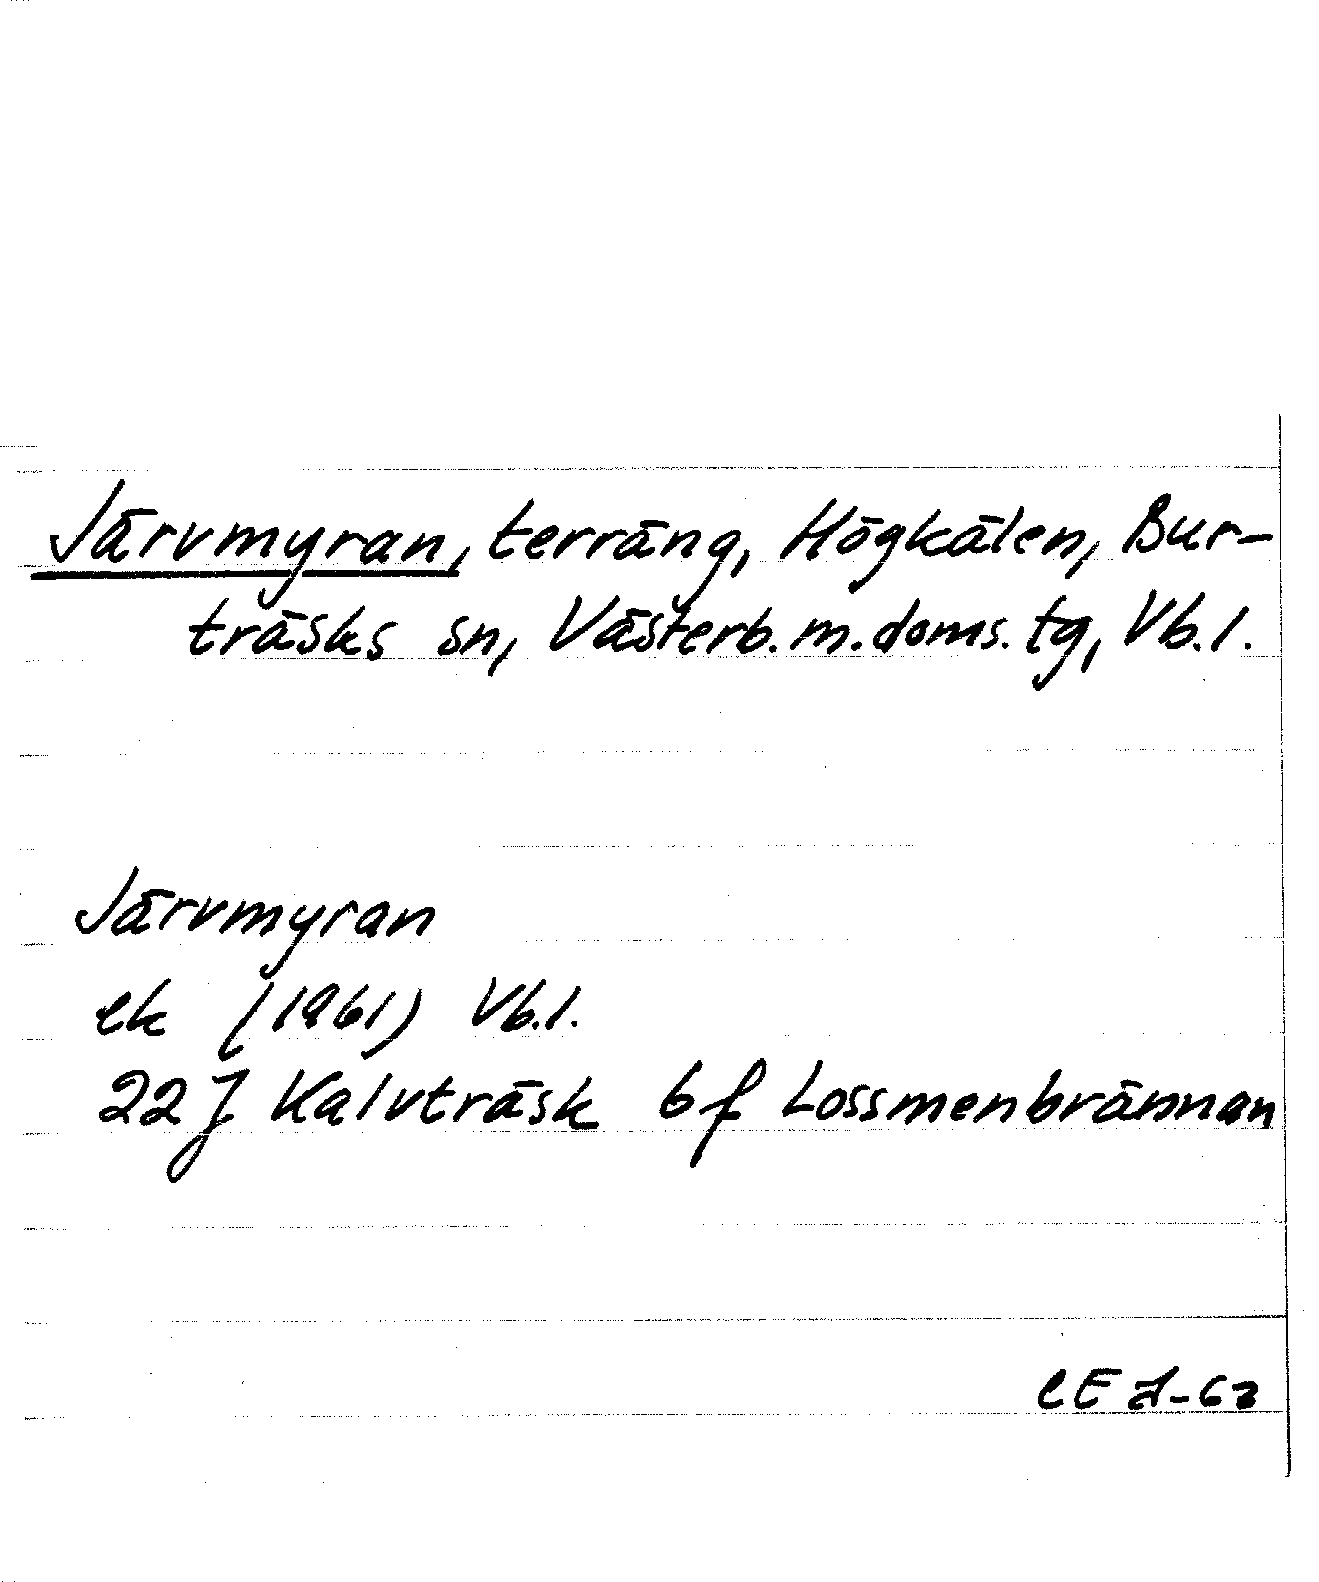 Järvmyran, terräng, Högkälen, Bur-
träsks sn, Västerb.m.doms.tg, Vb.l.
Järvmyran
ek (1961) Vb.l.
22 J Kalvträsk 6 f Lossmenbrännan